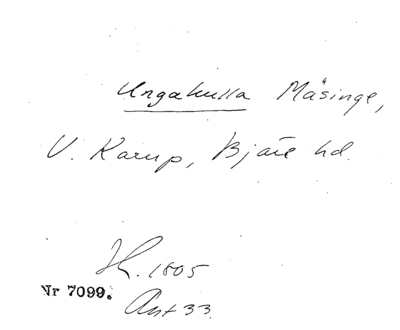 Ungakulla Mäsinge,
V. Karup, Bjäre hd.
H. 1805
Nr 7099.
Ant 33.